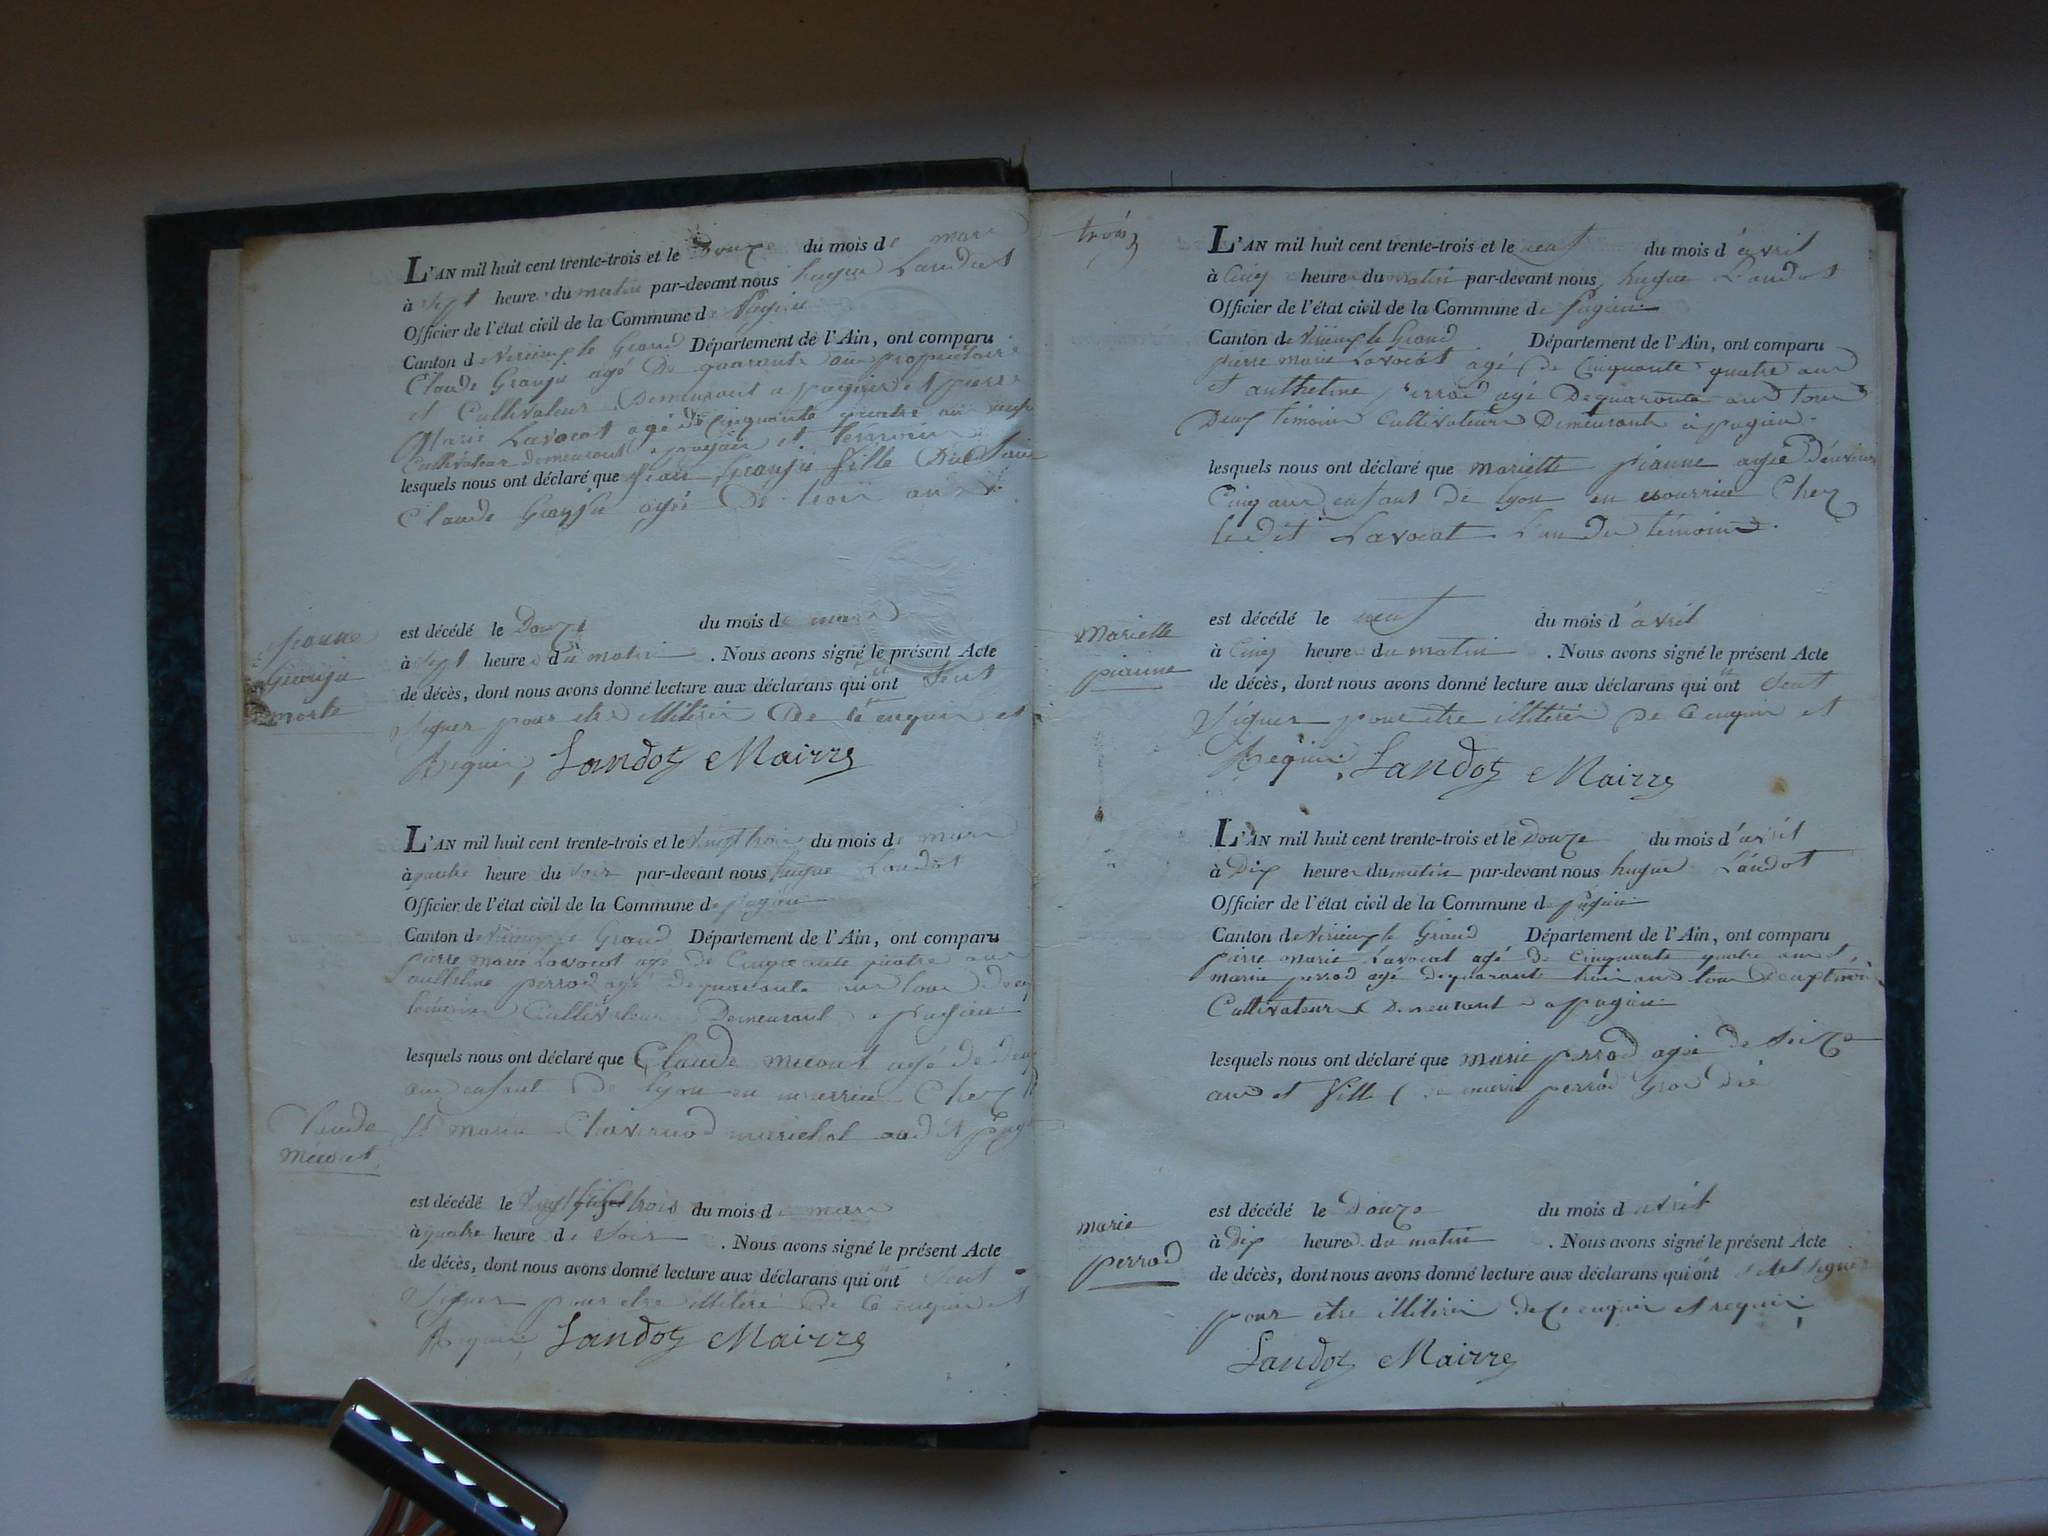 L'AN mil huit cent trente-trois et le Douze du mois de mars
à Sept heure du matin par-devant nous hugue Landot
Officier de l'état civil de la Commune de Pugieu
Canton de Virieux le Grand Département de l'Ain, ont comparu
Claude Granju agé De quarente ans propriétaire
et Cultivateur Demeurant a pugieu et pierre
Marie Lavocat agé de Cinquante quatre ans aussi
Cultivateur demeurant a pugieu et témoins
lesquels nous ont déclaré que Jean Granju fille Du Sair
Claude Granju agée De trois ans
est décédé le Douze du mois de mars
à Sept heure du matin . Nous avons signé le présent Acte
de décès, dont nous avons donné lecture aux déclarans qui ont Seut
Signer pour etre illitéré De ce enquir et
Requir, Landoz Mairre
Jeanne
Granju
morte
L'AN mil huit cent trente-trois et le vingt trois du mois de mars
à quatre heure du Soir par-devant nous hugue Landot
Officier de l'état civil de la Commune de pugieu
Canton de Virieux le Grand Département de l'Ain, ont comparu
pierre marie Lavocat agé de Cinquante quatre ans
anthelme perrod agé de quarante ans tous deux
témoins Cultivateur Demeurant a pugieu
lesquels nous ont déclaré que Claude mecout agé de deux
ans enfant de lyon en nourrice Chez
marie marichal audit pugieu
Claude
mecout
est décédé le vingt trois du mois de mars
à quatre heure de Soir . Nous avons signé le présent Acte
de décès, dont nous avons donné lecture aux déclarans qui ont Seut
Signer pour etre illitéré De ce enquir et
Requir, Landoz Mairre
trois
L'AN mil huit cent trente-trois et le neuf du mois d'avril
à Cinq heure du matin par-devant nous hugue Landot
Officier de l'état civil de la Commune de Pugieu
Canton de Virieux le Grand Département de l'Ain, ont comparu
pierre marie Lavocat agé de Cinquante quatre ans
et anthelme perrod agé De quarante ans tous
Deux témoins Cultivateurs Demeurant a pugieu.
lesquels nous ont déclaré que mariette pianne agée Denviron
Cinq ans enfant de lyon en nourrice Chez
ledit Lavocat L'un Du témoins.
Mariette
pianne
est décédé le neuf du mois d'avril
à Cinq heure du matin . Nous avons signé le présent Acte
de décès, dont nous avons donné lecture aux déclarans qui ont Seut
Signer pour etre illitéré De ce enquir et
Requir, Landoz Mairre
L'AN mil huit cent trente-trois et le Douze du mois d'avril
à Dix heure du matin par-devant nous hugue Landot
Officier de l'état civil de la Commune de pugieu
Canton de Virieux le Grand Département de l'Ain, ont comparu
pierre marie Lavocat agé de Cinquante quatre ans et,
marie perrod agé de quarante trois ans tous Deux témoins
Cultivateurs Demeurant a pugieu
lesquels nous ont déclaré que marie perrod agée de Seize
ans et fille de marie perrod
marie
perrod
est décédé le Douze du mois d'avril
à Dix heure du matin . Nous avons signé le présent Acte
de décès, dont nous avons donné lecture aux déclarans qui ont signer
pour être illitéré de Ce enquir et requir,
Landoz Mairre